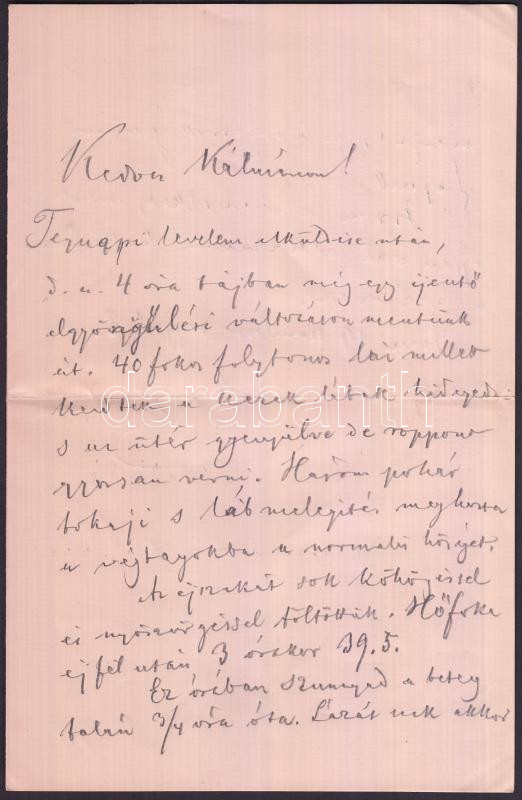 Kedves Kálmánom!
Tegnapi levelem elküldése után,
d. u. 4 óra tájban még egy ijesztő
elgyöngülési változáson mentünk
át. 40 fokos folytonos láz mellett
kezdtek a kezek lábak hidegedni
s az ütér gyengülve de roppant
gyorsan verni. Három pohár
tokaji s lábmelegítés meghozta
a végtagokba a normális hőséget.
Az éjszakát sok köhögéssel
és nyöszörgéssel töltöttük. Hőfoka
éjfél után 3 órakor 39.5.
Ez órában szunnyad a beteg
talán 3/4 óra óta. Lázát csak akkor
darabanth